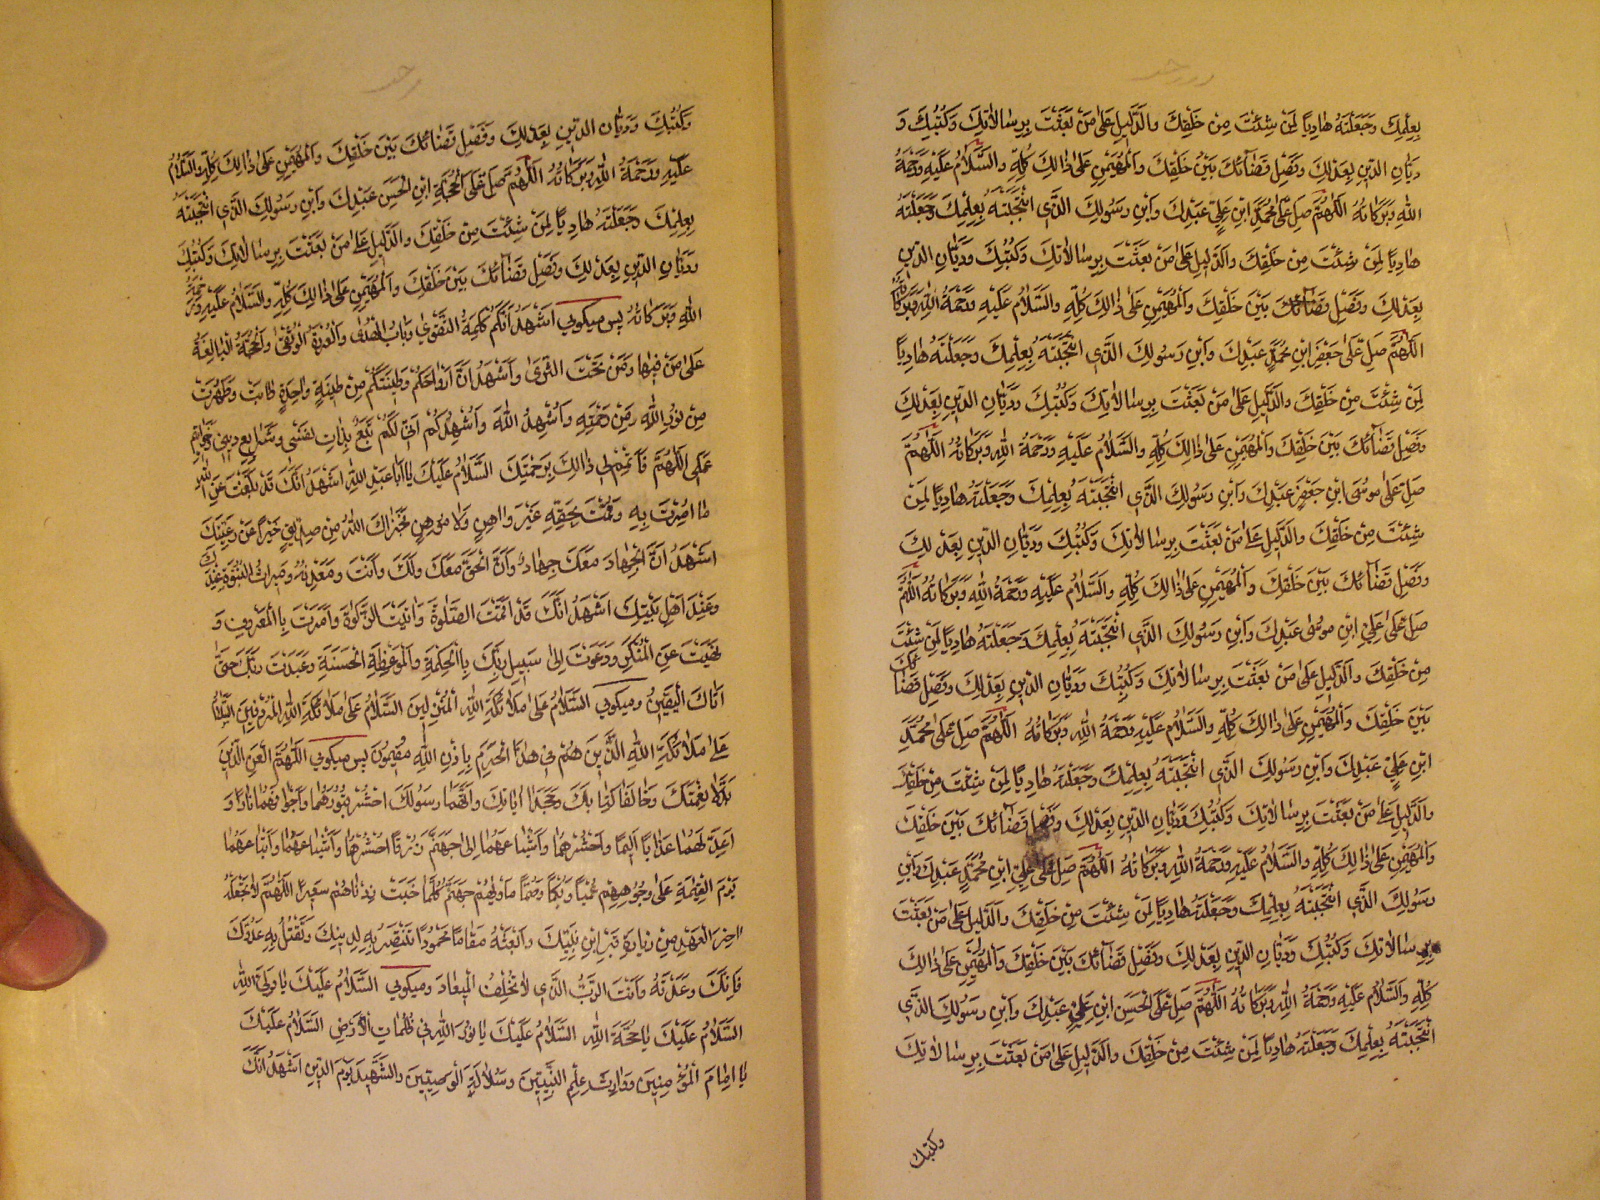 بِعِلْمِكَ وَجَعَلْتَهُ هَادِيًا لِمَنْ شِئْتَ مِنْ خَلْقِكَ وَالدَّلِيلِ عَلىٰ مَنْ بَعَثْتَ بِرِسَالاٰتِكَ وَكُتُبِكَ وَ
دَيَّانِ الدِّينِ بِعَدْلِكَ وَفَصْلِ قَضَائِكَ بَيْنَ خَلْقِكَ وَالْمُهَيْمِنِ عَلىٰ ذَالِكَ كُلِّهِ وَالسَّلاٰمُ عَلَيْهِ وَرَحْمَةُ
اللهِ وَبَرَكَاتُهُ اَللّٰهُمَّ صَلِّ عَلىٰ مُحَمَّدِ ابْنِ عَلِيٍّ عَبْدِكَ وَابْنِ رَسُولِكَ الَّذِي انْتَجَبْتَهُ بِعِلْمِكَ وَجَعَلْتَهُ
هَادِيًا لِمَنْ شِئْتَ مِنْ خَلْقِكَ وَالدَّلِيلِ عَلىٰ مَنْ بَعَثْتَ بِرِسَالاٰتِكَ وَكُتُبِكَ وَدَيَّانِ الدِّينِ
بِعَدْلِكَ وَفَصْلِ قَضَائِكَ بَيْنَ خَلْقِكَ وَالْمُهَيْمِنِ عَلىٰ ذَالِكَ كُلِّهِ وَالسَّلاٰمُ عَلَيْهِ وَرَحْمَةُ اللهِ وَبَرَكَاتُهُ
اَللّٰهُمَّ صَلِّ عَلىٰ جَعْفَرِ ابْنِ مُحَمَّدٍ عَبْدِكَ وَابْنِ رَسُولِكَ الَّذِي انْتَجَبْتَهُ بِعِلْمِكَ وَجَعَلْتَهُ هَادِيًا
لِمَنْ شِئْتَ مِنْ خَلْقِكَ وَالدَّلِيلِ عَلىٰ مَنْ بَعَثْتَ بِرِسَالاٰتِكَ وَكُتُبِكَ وَدَيَّانِ الدِّينِ بِعَدْلِكَ
وَفَصْلِ قَضَائِكَ بَيْنَ خَلْقِكَ وَالْمُهَيْمِنِ عَلىٰ ذَالِكَ كُلِّهِ وَالسَّلاٰمُ عَلَيْهِ وَرَحْمَةُ اللهِ وَبَرَكَاتُهُ اَللّٰهُمَّ
صَلِّ عَلىٰ مُوسَى ابْنِ جَعْفَرٍ عَبْدِكَ وَابْنِ رَسُولِكَ الَّذِي انْتَجَبْتَهُ بِعِلْمِكَ وَجَعَلْتَهُ هَادِيًا لِمَنْ
شِئْتَ مِنْ خَلْقِكَ وَالدَّلِيلِ عَلىٰ مَنْ بَعَثْتَ بِرِسَالاٰتِكَ وَكُتُبِكَ وَدَيَّانِ الدِّينِ بِعَدْلِكَ
وَفَصْلِ قَضَائِكَ بَيْنَ خَلْقِكَ وَالْمُهَيْمِنِ عَلىٰ ذَالِكَ كُلِّهِ وَالسَّلاٰمُ عَلَيْهِ وَرَحْمَةُ اللهِ وَبَرَكَاتُهُ اَللّٰهُمَّ
صَلِّ عَلىٰ عَلِيِّ ابْنِ مُوسىٰ عَبْدِكَ وَابْنِ رَسُولِكَ الَّذِي انْتَجَبْتَهُ بِعِلْمِكَ وَجَعَلْتَهُ هَادِيًا لِمَنْ شِئْتَ
مِنْ خَلْقِكَ وَالدَّلِيلِ عَلىٰ مَنْ بَعَثْتَ بِرِسَالاٰتِكَ وَكُتُبِكَ وَدَيَّانِ الدِّينِ بِعَدْلِكَ وَفَصْلِ قَضَائِكَ
بَيْنَ خَلْقِكَ وَالْمُهَيْمِنِ عَلىٰ ذَالِكَ كُلِّهِ وَالسَّلاٰمُ عَلَيْهِ وَرَحْمَةُ اللهِ وَبَرَكَاتُهُ اَللّٰهُمَّ صَلِّ عَلىٰ مُحَمَّدِ
ابْنِ عَلِيٍّ عَبْدِكَ وَابْنِ رَسُولِكَ الَّذِي انْتَجَبْتَهُ بِعِلْمِكَ وَجَعَلْتَهُ هَادِيًا لِمَنْ شِئْتَ مِنْ خَلْقِكَ
وَالدَّلِيلِ عَلىٰ مَنْ بَعَثْتَ بِرِسَالاٰتِكَ وَكُتُبِكَ وَدَيَّانِ الدِّينِ بِعَدْلِكَ وَفَصْلِ قَضَائِكَ بَيْنَ خَلْقِكَ
وَالْمُهَيْمِنِ عَلىٰ ذَالِكَ كُلِّهِ وَالسَّلاٰمُ عَلَيْهِ وَرَحْمَةُ اللهِ وَبَرَكَاتُهُ اَللّٰهُمَّ صَلِّ عَلىٰ عَلِيِّ ابْنِ مُحَمَّدٍ عَبْدِكَ وَابْنِ
رَسُولِكَ الَّذِي انْتَجَبْتَهُ بِعِلْمِكَ وَجَعَلْتَهُ هَادِيًا لِمَنْ شِئْتَ مِنْ خَلْقِكَ وَالدَّلِيلِ عَلىٰ مَنْ بَعَثْتَ
بِرِسَالاٰتِكَ وَكُتُبِكَ وَدَيَّانِ الدِّينِ بِعَدْلِكَ وَفَصْلِ قَضَائِكَ بَيْنَ خَلْقِكَ وَالْمُهَيْمِنِ عَلىٰ ذَالِكَ
كُلِّهِ وَالسَّلاٰمُ عَلَيْهِ وَرَحْمَةُ اللهِ وَبَرَكَاتُهُ اَللّٰهُمَّ صَلِّ عَلَى الْحَسَنِ ابْنِ عَلِيٍّ عَبْدِكَ وَابْنِ رَسُولِكَ الَّذِي
انْتَجَبْتَهُ بِعِلْمِكَ وَجَعَلْتَهُ هَادِيًا لِمَنْ شِئْتَ مِنْ خَلْقِكَ وَالدَّلِيلِ عَلىٰ مَنْ بَعَثْتَ بِرِسَالاٰتِكَ
وكتبك
وَكُتُبِكَ وَدَيَّانِ الدِّينِ بِعَدْلِكَ وَفَصْلِ قَضَائِكَ بَيْنَ خَلْقِكَ وَالْمُهَيْمِنِ عَلىٰ ذَالِكَ كُلِّهِ وَالسَّلاٰمُ
عَلَيْهِ وَرَحْمَةُ اللهِ وَبَرَكَاتُهُ اَللّٰهُمَّ صَلِّ عَلَى الْحُجَّةِ ابْنِ الْحَسَنِ عَبْدِكَ وَابْنِ رَسُولِكَ الَّذِي انْتَجَبْتَهُ
بِعِلْمِكَ وَجَعَلْتَهُ هَادِيًا لِمَنْ شِئْتَ مِنْ خَلْقِكَ وَالدَّلِيلِ عَلىٰ مَنْ بَعَثْتَ بِرِسَالاٰتِكَ وَكُتُبِكَ
وَدَيَّانِ الدِّينِ بِعَدْلِكَ وَفَصْلِ قَضَائِكَ بَيْنَ خَلْقِكَ وَالْمُهَيْمِنِ عَلىٰ ذَالِكَ كُلِّهِ وَالسَّلاٰمُ عَلَيْهِ وَرَحْمَةُ
اللهِ وَبَرَكَاتُهُ پس میکوبی اَشْهَدُ اَنَّكُمْ كَلِمَةُ التَّقْوىٰ وَبَابُ الْهُدىٰ وَالْعُرْوَةُ الْوُثْقىٰ وَالْحُجَّةُ الْبَالِغَةُ
عَلىٰ مَنْ فِيهَا وَمَنْ تَحْتَ الثَّرىٰ وَاَشْهَدُ اَنَّ اَرْوَاحَكُمْ وَطِينَتَكُمْ مِنْ طِينَةٍ وَاحِدَةٍ طَابَتْ وَطَهُرَتْ
مِنْ نُورِ اللهِ وَمِنْ رَحْمَتِهِ وَاُشْهِدُ اللهَ وَاُشْهِدُكُمْ اَنِّي لَكُمْ تَبَعٌ بِذَاتِ نَفْسِي وَشَرَايِعِ دِينِي وَخَوَاتِيمِ
عَمَلِي اَللّٰهُمَّ فَاَتْمِمْ لِي ذَالِكَ بِرَحْمَتِكَ السَّلاٰمُ عَلَيْكَ يَا اَبَا عَبْدِ اللهِ اَشْهَدُ اَنَّكَ قَدْ بَلَّغْتَ عَنِ اللهِ
مَا اُمِرْتَ بِهِ وَقُمْتَ بِحَقِّهِ غَيْرَ وَاهِنٍ وَلاٰ مُوهِنٍ فَجَزَاكَ اللهُ مِنْ صِدِّيقٍ خَيْرًا عَنْ رَعِيَّتِكَ
اَشْهَدُ اَنَّ الْجِهَادَ مَعَكَ جِهَادٌ وَاَنَّ الْحَقَّ مَعَكَ وَلَكَ وَاَنْتَ وَمَعْدِنُهُ وَمِيرَاثُ النُّبُوَّةِ عِنْدَكَ
وَعِنْدَ اَهْلِ بَيْتِكَ اَشْهَدُ اَنَّكَ قَدْ اَقَمْتَ الصَّلٰوةَ وَاٰتَيْتَ الزَّكٰوةَ وَاَمَرْتَ بِالْمَعْرُوفِ وَ
نَهَيْتَ عَنِ الْمُنْكَرِ وَدَعَوْتَ اِلىٰ سَبِيلِ رَبِّكَ بِالْحِكْمَةِ وَالْمَوْعِظَةِ الْحَسَنَةِ وَعَبَدْتَ رَبَّكَ حَتّىٰ
اَتَاكَ الْيَقِينُ ومیکوبی السَّلاٰمُ عَلىٰ مَلاٰئِكَةِ اللهِ الْمُنْزَلِينَ السَّلاٰمُ عَلىٰ مَلاٰئِكَةِ اللهِ الْمُرْدِفِينَ السَّلاٰمُ
عَلىٰ مَلاٰئِكَةِ اللهِ الَّذِينَ هُمْ فِي هٰذَا الْحَرَمِ بِاِذْنِ اللهِ مُقِيمُونَ پس میکوبی اَللّٰهُمَّ الْعَنِ الَّذَيْنِ
بَدَّلاٰ نِعْمَتَكَ وَخَالَفَا كِتَابَكَ وَجَحَدَا اٰيَاتِكَ وَاتَّهَمَا رَسُولَكَ احْشُ قُبُورَهُمَا وَاَجْوَافَهُمَا نَارًا وَ
اَعِدَّ لَهُمَا عَذَابًا اَلِيمًا وَاحْشُرْهُمَا وَاَشْيَاعَهُمَا اِلىٰ جَهَنَّمَ زُرْقًا احْشُرْهُمَا وَاَشْيَاعَهُمَا وَاَتْبَاعَهُمَا
يَوْمَ الْقِيٰمَةِ عَلىٰ وُجُوهِهِمْ عُمْيًا وَبُكْمًا وَصُمًّا مَأْوٰيهُمْ جَهَنَّمُ كُلَّمَا خَبَتْ زِدْنَاهُمْ سَعِيرًا اَللّٰهُمَّ لاٰ تَجْعَلْهُ
اٰخِرَ الْعَهْدِ مِنْ زِيَارَةِ قَبْرِ ابْنِ نَبِيِّكَ وَابْعَثْهُ مَقَامًا مَحْمُودًا تَنْتَصِرُ بِهِ لِدِينِكَ وَتَقْتُلُ بِهِ عَدُوَّكَ
فَاِنَّكَ وَعَدْتَهُ وَاَنْتَ الرَّبُّ الَّذِي لاٰ تُخْلِفُ الْمِيعَادَ ومیکوبی السَّلاٰمُ عَلَيْكَ يَا وَلِيَّ اللهِ
السَّلاٰمُ عَلَيْكَ يَا حُجَّةَ اللهِ السَّلاٰمُ عَلَيْكَ يَا نُورَ اللهِ فِي ظُلُمَاتِ الْاَرْضِ السَّلاٰمُ عَلَيْكَ
يَا اِمَامَ الْمُؤْمِنِينَ وَوَارِثَ عِلْمِ النَّبِيِّينَ وَسُلاٰلَةَ الْوَصِيِّينَ وَالشَّهِيدَ يَوْمَ الدِّينِ اَشْهَدُ اَنَّكَ